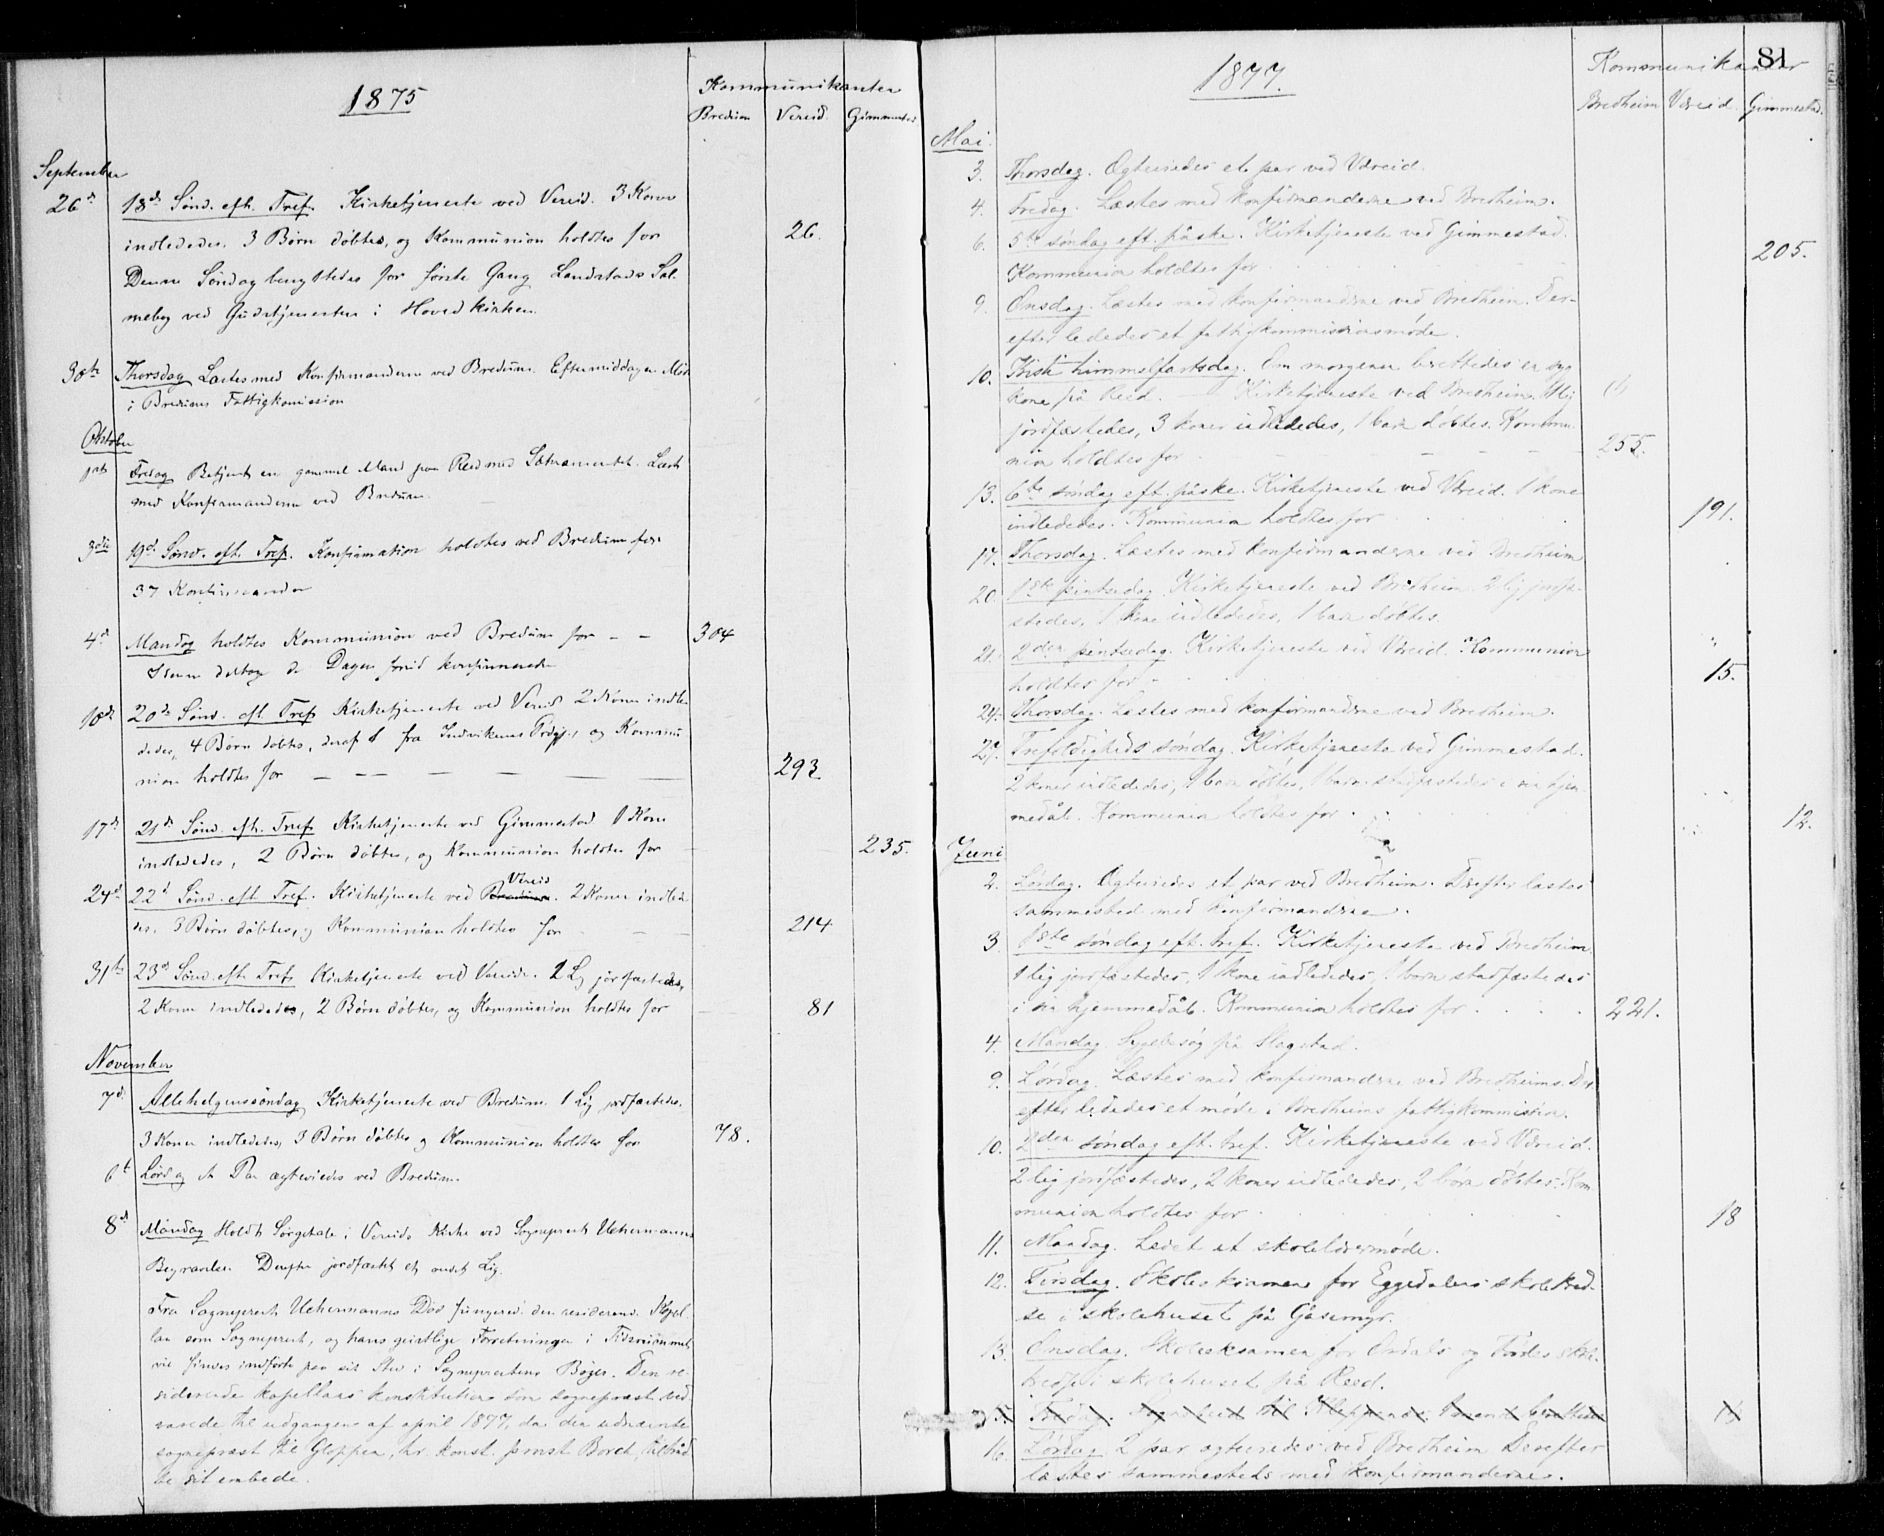 1875
Kommunikanter
Bredum Vereid. Gimmestad
September
26d 18de Sønd. eft. Tref. Kirketjeneste ved Vereid. 3 Koner
indlededes. 3 Børn døbtes, og Kommunion holdtes for 26.
Denne Søndag benyttedes for første Gang Landstads Sal-
mebog ved Gudstjenesten i Hovedkirken.
30te Thorsdag Læstes med Konfirmanderne ved Bredum. Eftermiddagen Møde
i Bredums Fattigkomission
Oktober
1ste Fredag Betjent en gammel Mand paa Reed med Sakramentet. Læst
med Konfirmanderne ved Bredum.
3die 19d Sønd. eft. Tref. Konfirmation holdtes ved Bredum for
37 Konfirmander
4d Mandag holdtes Kommunion ved Bredum for - - 304
deltog de Dagen forud konfirmerede
10de 20de Sønd. eft Tref Kirketjeneste ved Vereid 2 Koner indle-
dedes, 4 Børn døbtes, deraf 1 fra Indvikens Prgj., og Kommu-
nion holdtes for — — — — — — 293.
17de 21de Sønd. eft. Tref Kirketjeneste ved Gimmestad 1 Kone
indlededes, 2 Børn døbtes, og Kommunion holdtes for — 235.
24d 22d Sønd. eft Tref. Kirketjeneste ved Bredum Vereid. 2 Koner indlede-
des. 3 Børn døbtes, og Kommunion holdtes for - — — 214
31te 23d Sønd. eft Tref Kirketjeneste ved Vereid. 2 Lig jordfæstedes,
2 Koner indlededes, 2 Børn døbtes, og Kommunion holdtes for — 81
November
7d. Allehelgenssøndag Kirketjeneste ved Bredum. 1 Lig jordfæstedes.
3 Koner indlededes, 3 Børn døbtes og Kommunion holdtes for 78.
6t Lørdag et Par ægteviedes ved Bredum.
8d Mandag Holdt Sørgetale i Vereids Kirke ved Sogneprest Uchermanns
Begravelse. Derefter jordfæstet et andet Lig.
Fra Sogneprest Uchermanns Død fungered. den residerend. Kapel-
lan som Sogneprest, og hans geistlige Forretninger i Tidsrummet
vil findes indførte paa sit Sted i Sogneprestens Bøger. Den re-
siderende kapellans konstitution som sogneprest ved-
varede til udgangen af april 1877, da den udnævnte
sogneprest til Gloppen, hr. konst. provst Borch, tiltråd-
te sit embede.
81
1877.
Kommunikanter
Bredheim Væreid. Gimmestad.
Mai.
3. Thorsdag. Ægteviedes et par ved Væreid.
4. Fredag. Læstes med konfirmanderne ved Bredheim.
6. 5te søndag eft. påske. Kirketjeneste ved Gimmestad.
Kommunion holdtes for 205.
9. Onsdag. Læstes med konfirmanderne ved Bredheim. Der-
efter lededes et fattigkommissionsmøde.
10. Kristi himmelfartsdag. Om morgenen berettedes en syg
kone på Reed. — Kirketjeneste ved Bredheim. 1 lig (1)
jordfæstedes, 3 koner indlededes, 1 barn døbtes. Kommu-
nion holdtes for - - - - - 255.
13. 6te søndag eft. påske. Kirketjeneste ved Væreid. 1 kone
indlededes. Kommunion holdtes for 191.
17. Thorsdag. Læstes med konfirmanderne ved Bredheim
20. 1ste pintsedag. Kirketjeneste ved Bredheim. 2 lig jordfæ-
stedes, 1 kone indlededes, 1 barn døbtes.
21. 2den pintsedag. Kirketjeneste ved Væreid. Kommunion
holdtes for 15.
24. Thorsdag. Læstes med konfirmanderne ved Bredheim.
27. Trefoldigheds søndag. Kirketjeneste ved Gimmestad.
2 koner indlededes, 1 barn døbtes, 1 barn stadfæstedes i sin hjem-
medåb. Kommunion holdtes for 12.
Juni
2. Lørdag. Ægteviedes et par ved Bredheim. Derefter læstes
sammested med konfirmanderne.
3. 1ste søndag eft. tref. Kirketjeneste ved Bredheim
1 lig jordfæstedes, 1 kone indlededes, 1 barn stadfæstedes
i sin hjemmedåb. Kommunion holdtes for . . . . 221.
4. Mandag. Sygebesøg på Slagstad.
9. Lørdag. Læstes med konfirmanderne ved Bredheim. Der-
efter lededes et møde i Bredheims fattigkommission.
10. 2den søndag eft. tref. Kirketjeneste ved Væreid.
2 lig jordfæstedes, 2 koner indlededes, 2 børn døbtes. Kom-
munion holdtes for 18
11. Mandag. Ledet et skolelærermøde.
12. Tirsdag. Skoleeksamen for Eggedalens skolekred-
se i skolehuset på Gåsemyr.
13. Onsdag. Skoleeksamen for Ordals og Fördes skole-
kredse i skolehuset på Reed.
15. Fredag. til (1)
16. Lørdag. 2 par ægteviedes ved Bredheim Derefter
læstes sammesteds med konfirmanderne.